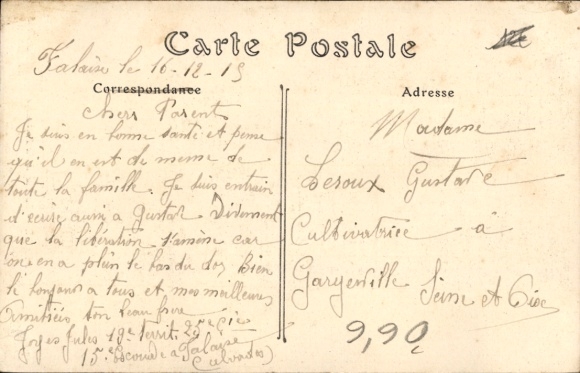 Carte Postale
Falaise le 16-12-15
Correspondance
Chers Parent
Je suis en bonne santé et pense
qu'il en est de meme de
toute la famille. Je suis entrain
d'ecrire aussi a Gustav Divement
que la libération s'amène car
on en a plein le bas du dos Bien
le bonjour a tous et mes meilleures
Amitiés ton beau frere
Jules 19e territ. 25e Cie
15e Escouade a Falaise
(Calvados)
Adresse
Madame
Leroux Gustave
Cultivatrice à
Gargenville Seine et Oise
9,90